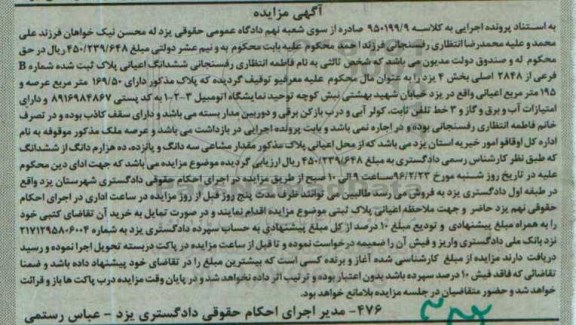 آگهی مزایده
به استناد پرونده اجرایی به کلاسه ۹۵۰۱۹۹/۹ صادره از سوی شعبه نهم دادگاه عمومی حقوقی یزد له محسن نیک خواهان فرزند علی
محمد و علیه محمدرضا انتظاری رفسنجانی فرزند احمد محکوم علیه بابت محکوم به و نیم عشر دولتی مبلغ ۴۵۰/۲۳۹/۶۴۸ ریال در حق
محکوم له و صندوق دولت مدیون می باشد که شخص ثالثی به نام فاطمه انتظاری رفسنجانی ششدانگ اعیانی پلاک ثبت شده شماره B
فرعی از ۲۸۴۸ اصلی بخش ۴ یزد را به عنوان مال محکوم علیه معرفیو توقیف گردیده که پلاک مذکور دارای ۱۶۹/۵۰ متر مربع عرصه و
۱۹۵ متر مربع اعیانی واقع در یزد خیابان شهید بهشتی نبش کوچه توحید نمایشگاه اتومبیل ۳-۲-۱ به کد پستی ۸۹۱۶۹۸۴۸۶۷ و دارای
امتیازات آب و برق و گاز و ۳ خط تلفن ثابت، کولر آبی و درب بازکن برقی و دوربین مدار بسته می باشد و دارای سقف کاذب بوده و در تصرف
خانم فاطمه انتظاری رفسنجانی بوده و در اجاره نمی باشد و بابت پرونده اجرایی در بازداشت می باشد و عرصه ملک مذکور موقوفه به نام
اداره کل اوقافو امور خیریه استان یزد می باشد که از محل اعیانی پلاک مذکور مقدار مشاعی سه دانگ و پانزده، ده هزارم دانگ از ششدانگ
که طبق نظر کارشناس رسمی دادگستری به مبلغ ۴۵۰/۲۳۹/۶۴۸ ریال ارزیابی گردیده موضوع مزایده می باشد که جهت ادای دین محکوم
علیه در تاریخ روز شنبه مورخ ۹۶/۲/۲۳ساعت ۹ الی ۱۰ صبح از طریق مزایده در اجرای احکام حقوقی دادگستری شهرستان یزد واقع
در طبقه اول دادگستری یزد به فروش می رسد. طالبین می توانند ظرف مدت پنج روز قبل از روز مزایده در ساعت اداری در اجرای احکام
حقوقی نهم یزد حاضر و جهت ملاحظه اعیانی پلاک ثبتی موضوع مزایده اقدام نمایند و در صورت تمایل به خرید آن تقاضای کتبی خود
را به همراه مبلغ پیشنهادی و تودیع مبلغ ۱۰ درصد از کل مبلغ پیشنهادی به حساب سپرده دادگستری یزد به شماره ۲۱۷۱۲۹۵۸۰۶۰۰۴
نزد بانک ملی دادگستری واریز و فیش آن را ضمیمه درخواست نموده و تا قبل از ساعت مزایده در پاکت دربسته تحویل اجرا نموده و رسید
دریافت دارند مزایده از مبلغ کارشناسی شده آغاز و برنده کسی است که بیشترین مبلغ را در تقاضای خود پیشنهاد داده باشد و ضمنا
تقاضائی که فاقد فیش ۱۰ درصد سپرده باشد بدون اعتبار بوده و ترتیب اثر داده نخواهد شد و در پایان وقت مزایده درب پاکت ها باز و قرائت
خواهد شد و حضور متقاضیان در جلسه مزایده بلامانع خواهد بود.
۴۷۶- مدیر اجرای احکام حقوقی دادگستری یزد - عباس رستمی